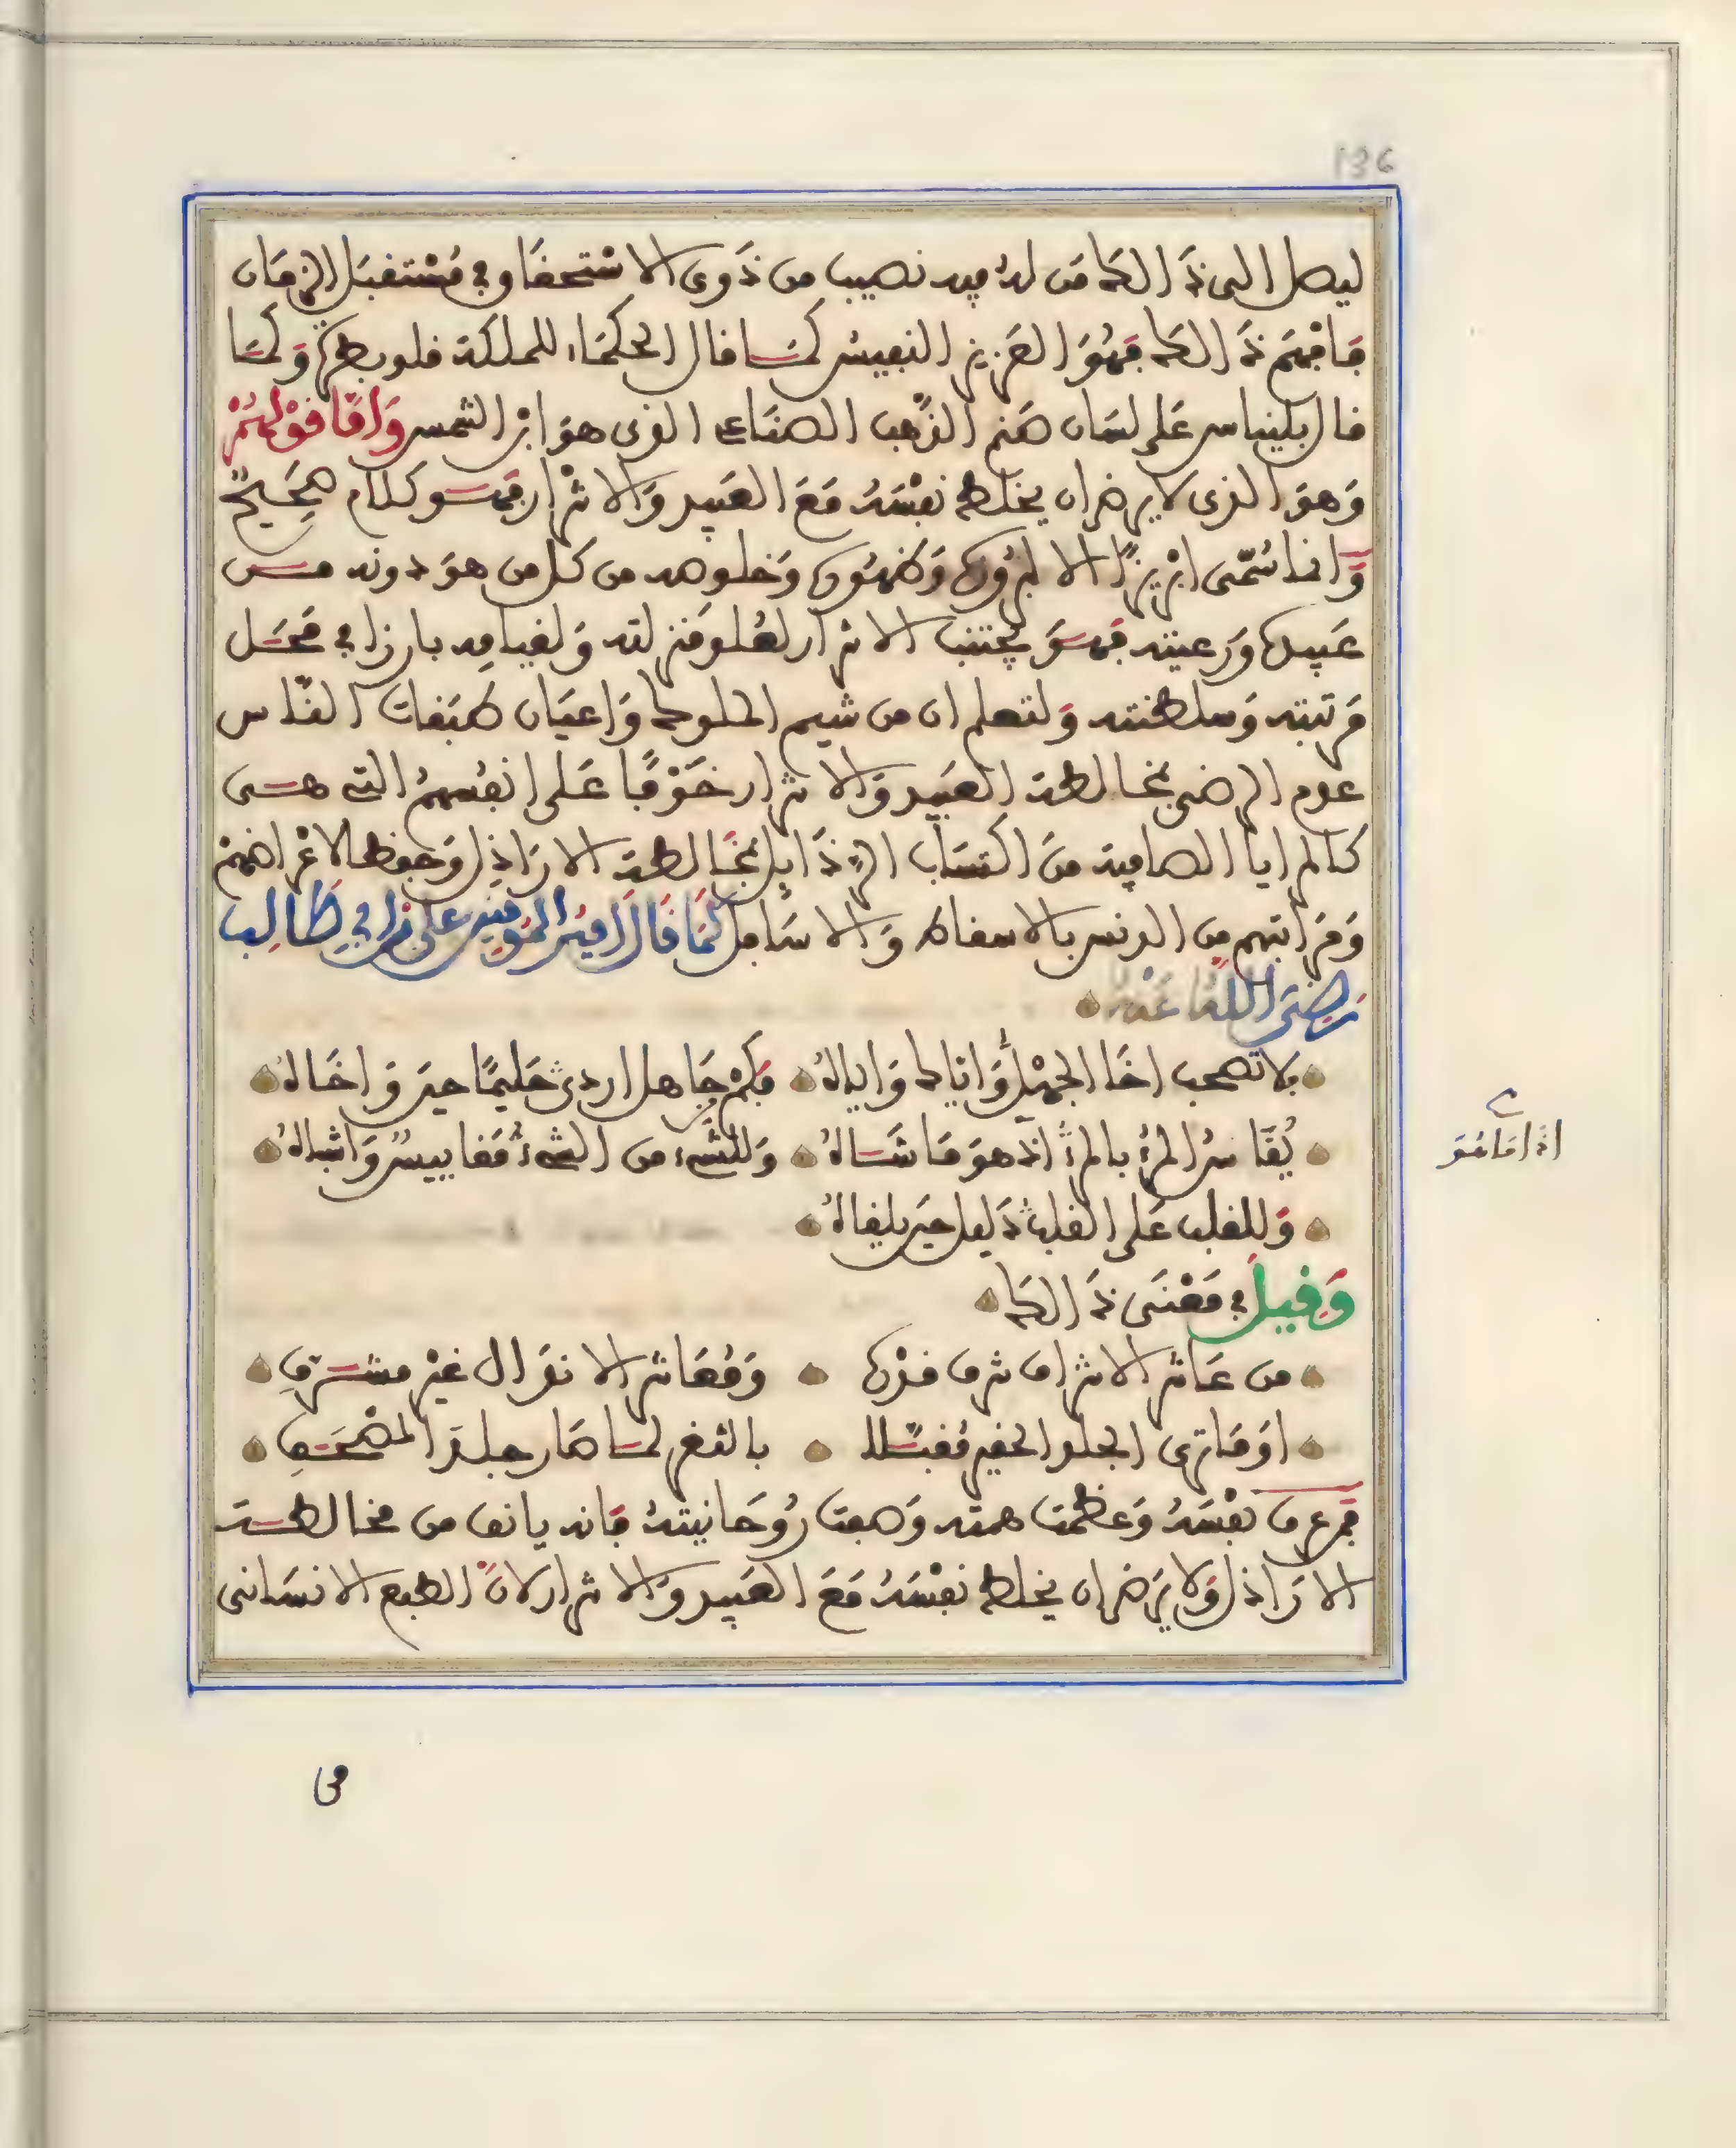 136
ليصل الى ذالك من له فيه نصيب من ذوى الاستحقاق في مستقبل الزمان
فافهم ذالك فهو العزيز النفيس كما قال الحكماء للملكة قلوبطرة وكما
قال بليناس على لسان صنم الذهب الصناعي الذى هو ابن الشمس وَامّا قَوْلهُمْ
وَهوَ الذى لا يرضى ان يخلط نفسَهُ مَعَ العَبيد وَالاشرار فهو كلام صَحِيحٌ
وَانما سُمّى ابريزًا الا لبروزه وَظهوره وَخلوصه من كل من هوَ دونه من
عَبيده وَرعيته فهو يجتنب الاشرار لعُلو منزلته وَلقيامه بارزا في محَل
مرتبته وَسلطنته وَلتعلم ان من شيم الملوك وَاعيَان طبَقات الناس
عدم الرضى بمخالطة العَبيد وَالاشرار خَوْفًا عَلى انفسهمُ التى هى
كالمرايا الصافية منَ اكتسَاب الرذايل بمخَالطة الارَاذِل وَحفظا لاغراضهمْ
وَمرَاتبهم من الدنس بالاسفال وَالاسَافل كمَا قَالَ اميرُ المؤمنِين علي بن ابي طَالِب
رَضِىَ اللهُ عَنْهُ
فلا تصحب اخَا الجهْل وَاياك وَاياهُ فكمْ جَاهل اردى حَليمًا حينَ وَاخَاهُ
يُقَاسُ المرءُ بالمرءِ اذ هوَ مَا شَاهُ وَللشىء من الشىءِ مقاييسٌ وَاشباهُ
اذا مَا هُوَ
وَللقلب عَلى القلب دَليل حينَ يلقاهُ
وَقيلَ في مَعْنَى ذَالكَ
من عَاشر الاشراف شرف قدْره وَمُعَاشر الانذال غيْر مشرف
اوَمَا ترى الجلد الحقير مُقبَّلا بالثغر لما صَار جلدَ المصْحَفِ
فمن عرف نفسَهُ وَعظمت همته وَصفت رُوحَانيتهُ فانه يانف من مخالطة
الارَاذل وَلا يَرضى ان يخلط نفسَهُ مَعَ العَبيد وَالاشرار لانّ الطبع الانسَانى